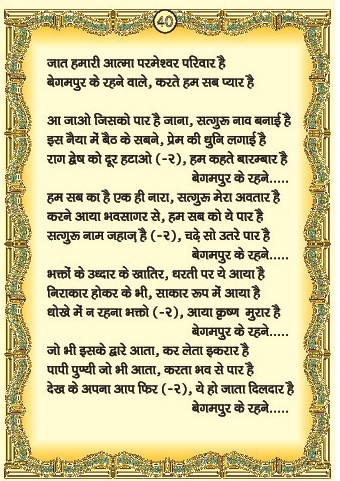 40
जात हमारी आत्मा परमेश्वर परिवार है
बेगमपुर के रहने वाले, करते हम सब प्यार है
आ जाओ जिसको पार है जाना, सत्गुरु नाव बनाई है
इस नैया में बैठ के सबने, प्रेम की धुनि लगाई है
राग द्वेष को दूर हटाओ (-२), हम कहते बारम्बार है
बेगमपुर के रहने.....
हम सब का है एक ही नारा, सत्गुरु मेरा अवतार है
करने आया भवसागर से, हम सब को ये पार है
सत्गुरु नाम जहाज़ है (-२), चढ़े सो उतरे पार है
बेगमपुर के रहने.....
भक्तों के उध्दार के खातिर, धरती पर ये आया है
निराकार होकर के भी, साकार रूप में आया है
धोखे में न रहना भक्तो (-२), आया कृष्ण मुरार है
बेगमपुर के रहने.....
जो भी इसके द्वारे आता, कर लेता इकरार है
पापी पुण्यी जो भी आता, करता भव से पार है
देख के अपना आप फिर (-२), ये हो जाता दिलदार है
बेगमपुर के रहने.....